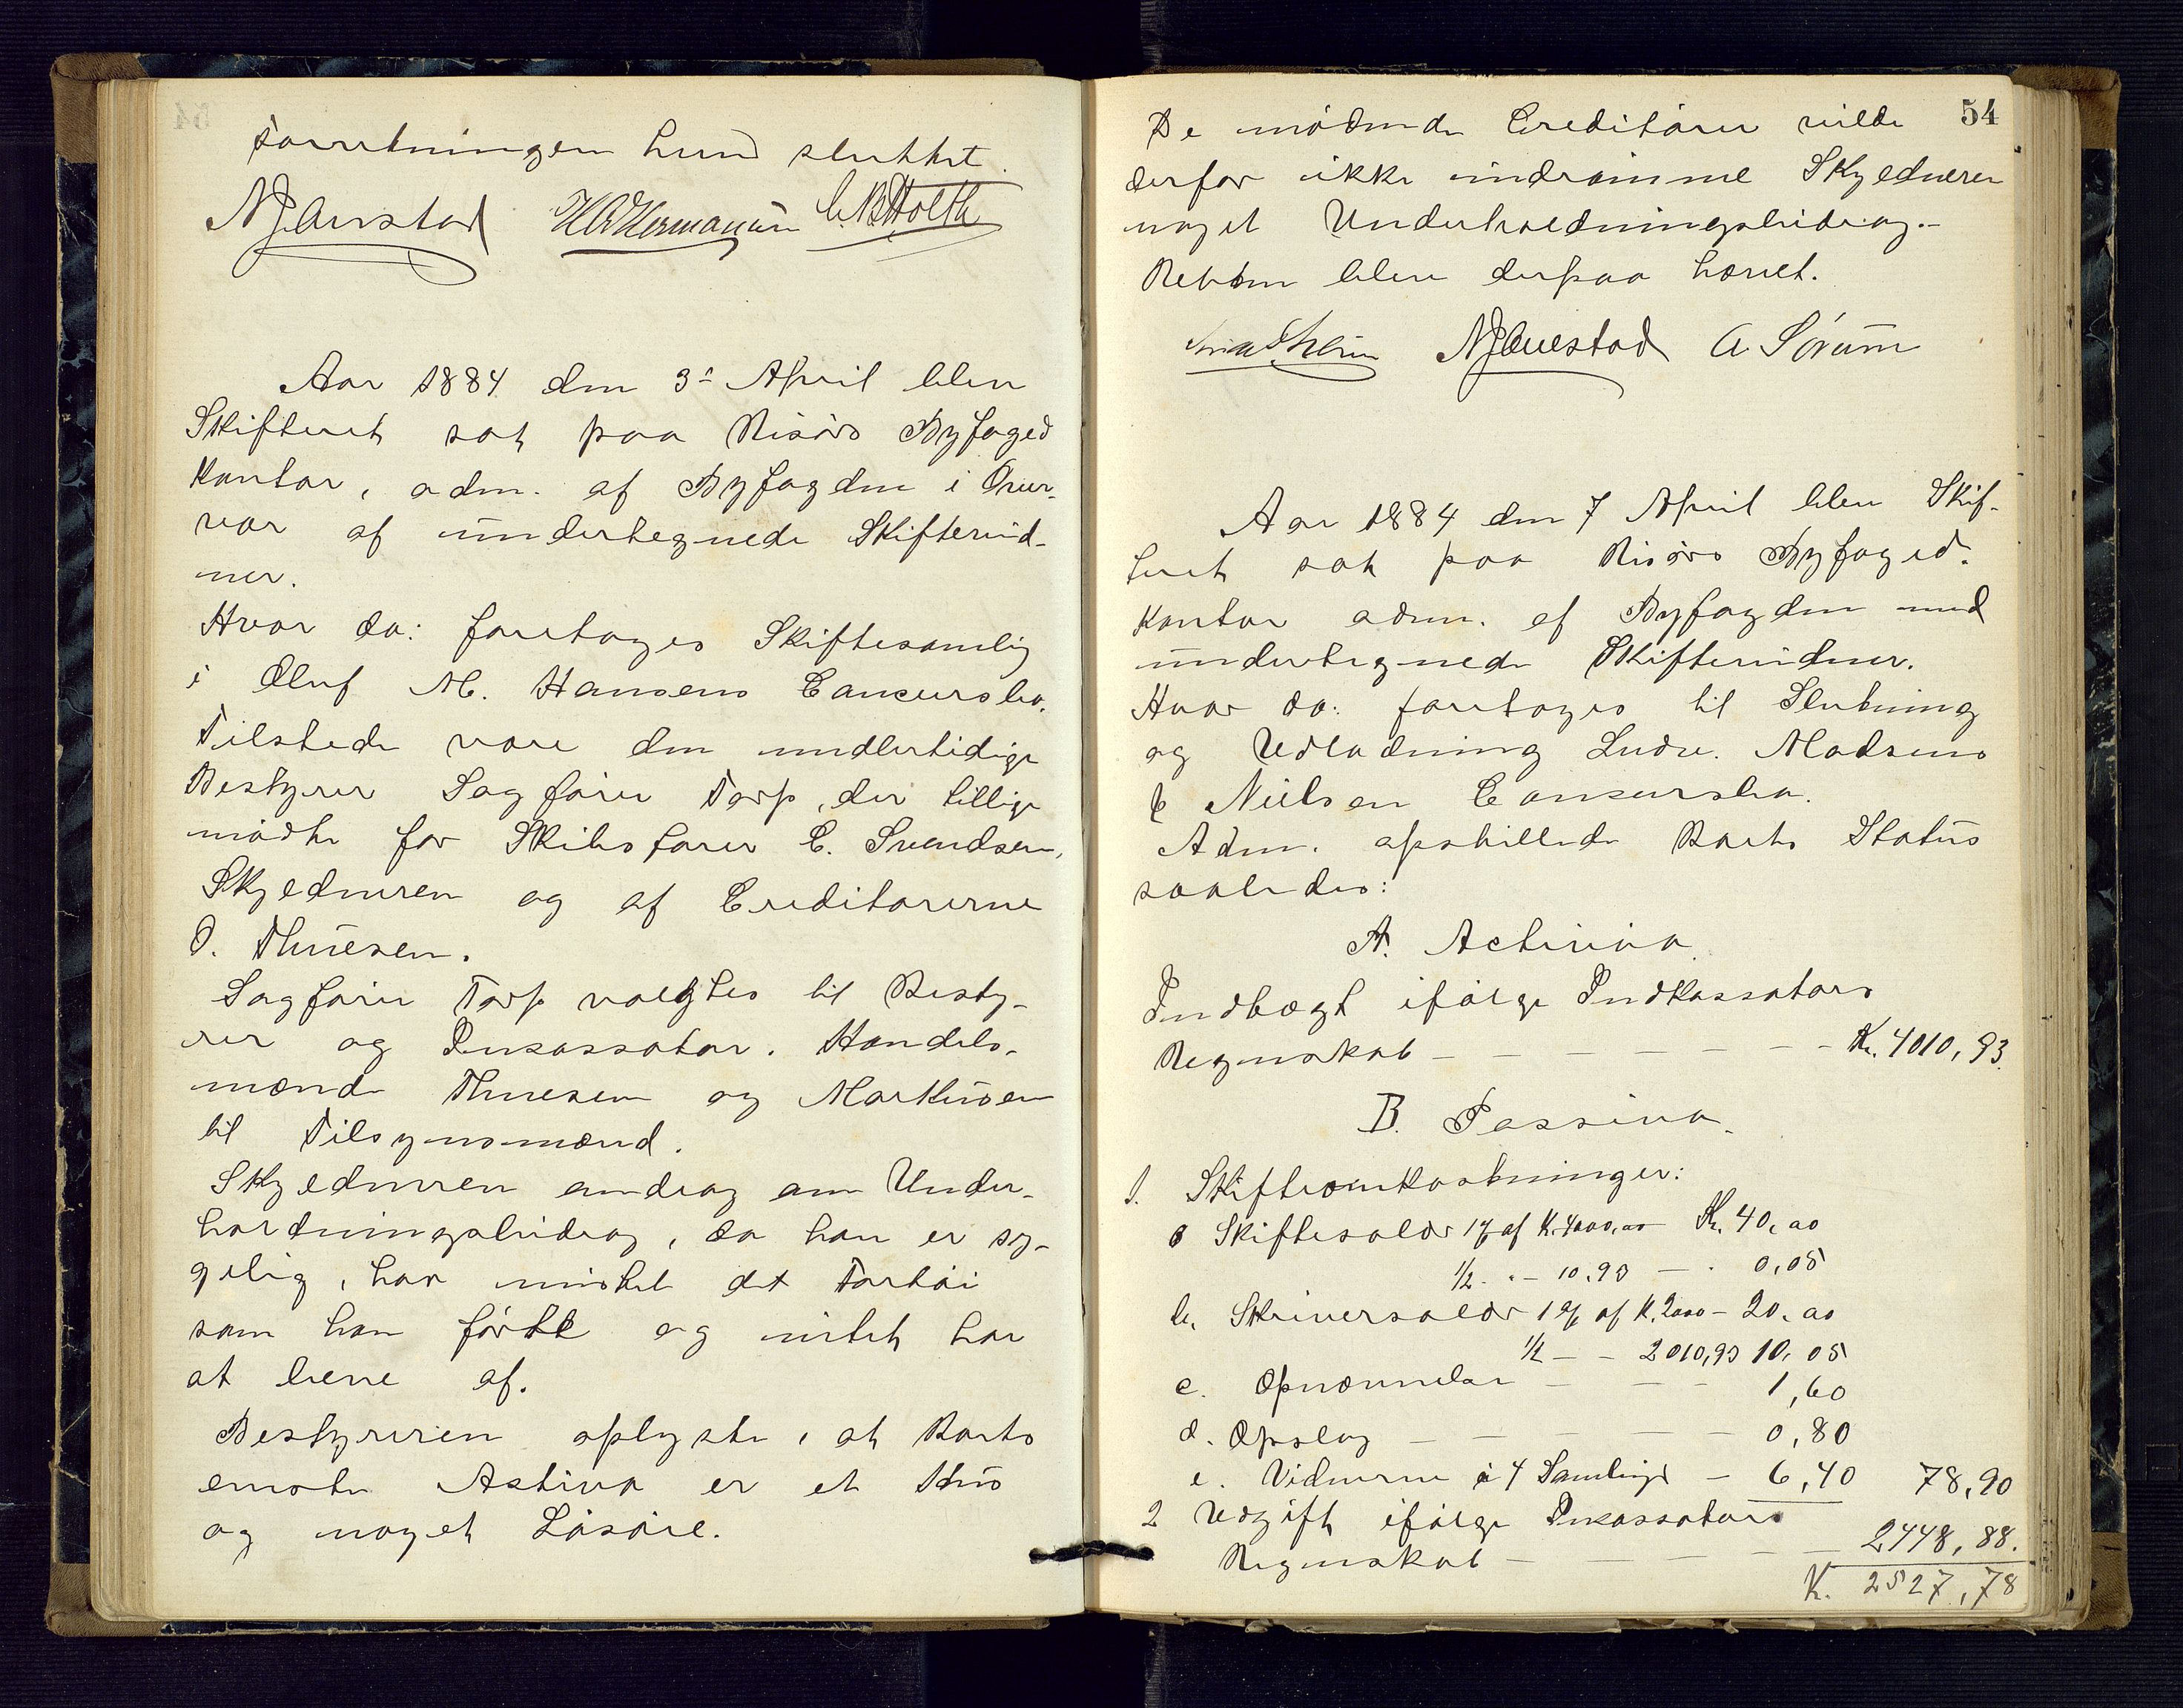 Forretningen hermed sluttet.
NJAuestad HOHermansen C. N. Holth
Aar 1884 den 3die April blev
Skifteret sat paa Risørs Byfoged
Kontor, adm. af Byfogden i Over-
vær af undertegnede Skiftevid-
ner.
Hvor da: foretoges Skiftesamling
i Oluf M. Hansens Concursbo.
Tilstede vare den midlertidige
Bestyrer Sagfører Torp, der tillige
mødte for Skibsfører C. Svendsen,
Skyldneren og af Creditorerne
O. Thuesen.
Sagfører Torp valgtes til Besty-
rer og Incassator. Handels-
mænd Thuesen og Markusen
til Tilsynsmænd.
Skyldneren androg om Under-
holdningsbidrag, da han er sy-
gelig, har mistet det Fartøi
som han førte og intet har
at leve af.
Bestyreren oplyste, at Boets
eneste Activa er et Hus
og noget Løsøre.
54
De mødende Creditorer vilde
derfor ikke indrømme Skyldneren
noget Underholdningsbidrag.-
Retten blev derpaa hævet.
NJAuestad A. Sørum
Aar 1884 den 7 April blev Skif-
teret sat paa Risørs Byfoged-
Kontor adm. af Byfogden med
undertegnede Skiftevidner.
Hvor da: foretoges til Slutning
og Udlodning Ludv. Madsens
& Nielsen Concursbo.
Adm. opstillede Boets Status
saaledes:
A. Activa.
Indbragt ifølge Indkassators
Regnskab - - - - - - - Kr. 4010,93.
B. Passiva.
1. Skifteomkostninger:
a Skiftesalær 1% af K. 4000,00 Kr. 40,00
1/2 - " - 10,93 - - 0,05
b. Skriversalær 1% af K. 2000 - 20,00
1/2 - - 2010,93 10,05
c. Opnævnelse - - - 1,60
d. Opslag - - - - - 0,80
e. Vidnerne i 4 Samlinger - 6,40 78,90
2 Udgift ifølge Incassators
Regnskab - - - - - 2448,88.
K. 2527,78